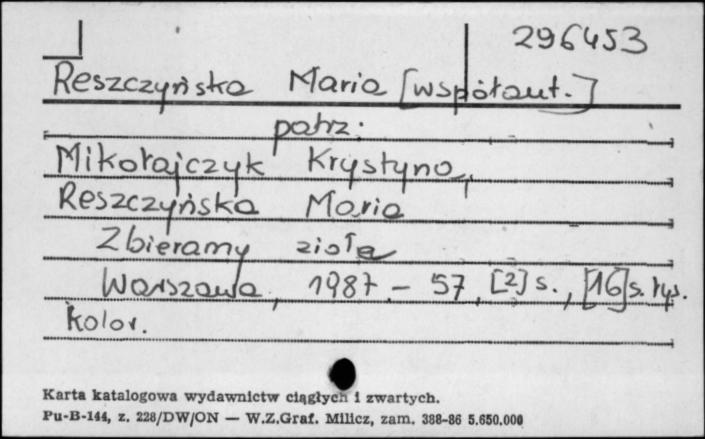 296453
Reszczyńska Maria [współaut.]
patrz:
Mikołajczyk Krystyna,
Reszczyńska Maria
Zbieramy zioła
Warszawa, 1987. – 57, [2] s., [16] s. rys.
kolor.
Karta katalogowa wydawnictw ciągłych i zwartych.
Pu-B-144, z. 228/DW/ON — W.Z.Graf. Milicz, zam. 388-86 5.650.000